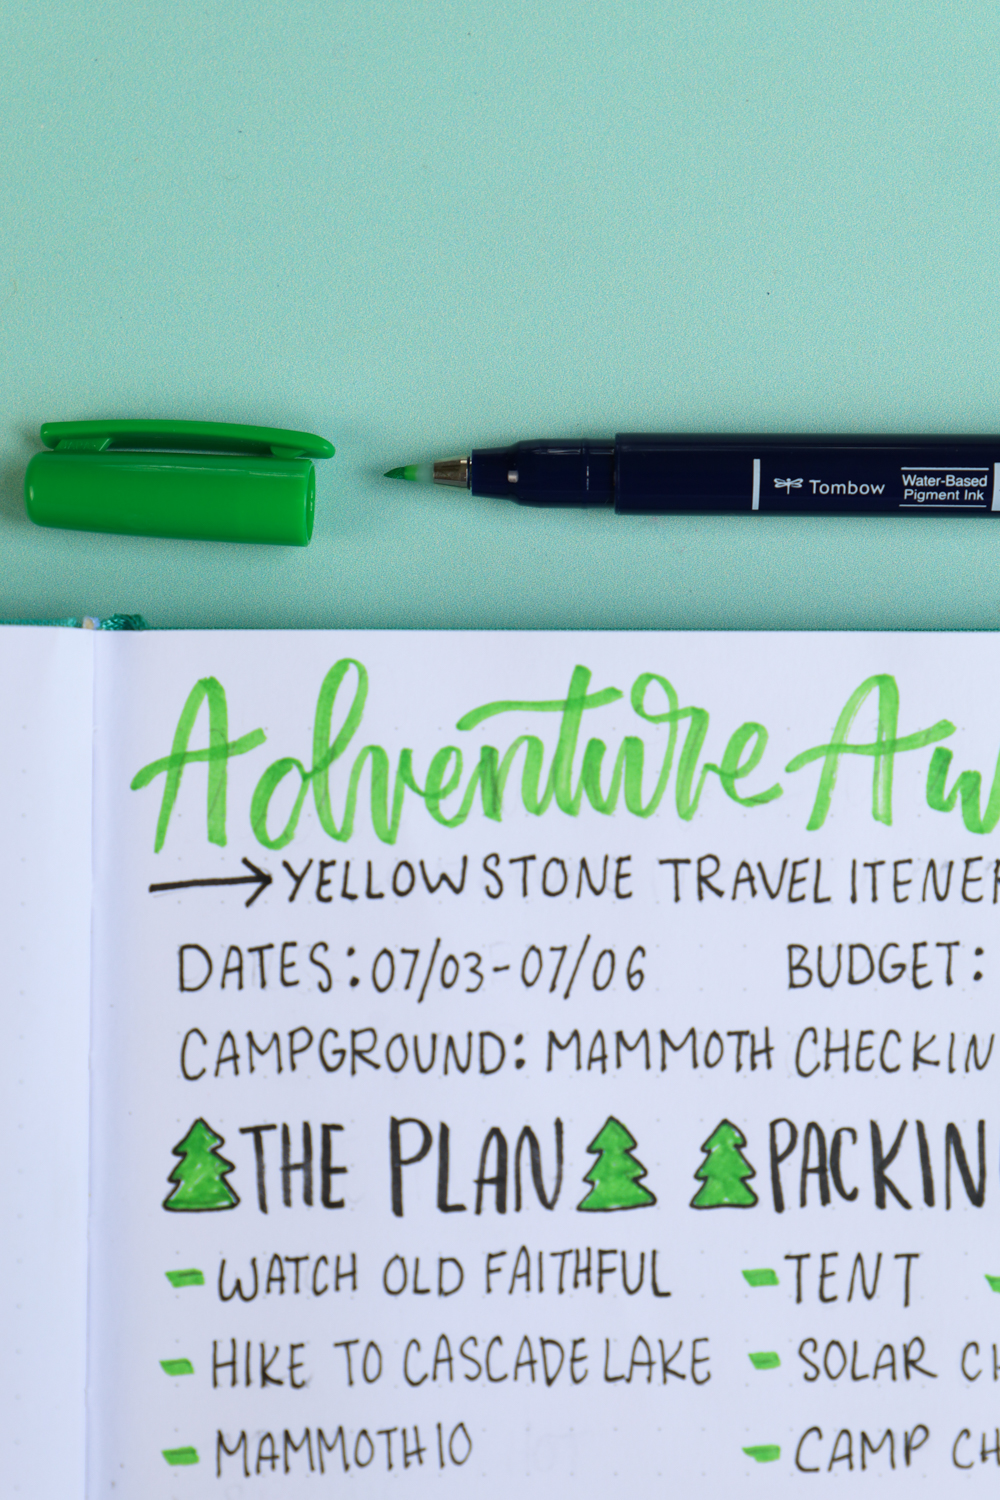 Tombow
Water-Based
Pigment Ink
Adventure Aw
→YELLOWSTONE TRAVEL ITENER
DATES: 07/03-07/06 BUDGET:
CAMPGROUND: MAMMOTH CHECKIN
THE PLAN PACKIN
- WATCH OLD FAITHFUL - TENT -
- HIKE TO CASCADE LAKE - SOLAR CH
- MAMMOTH 10 - CAMP CH